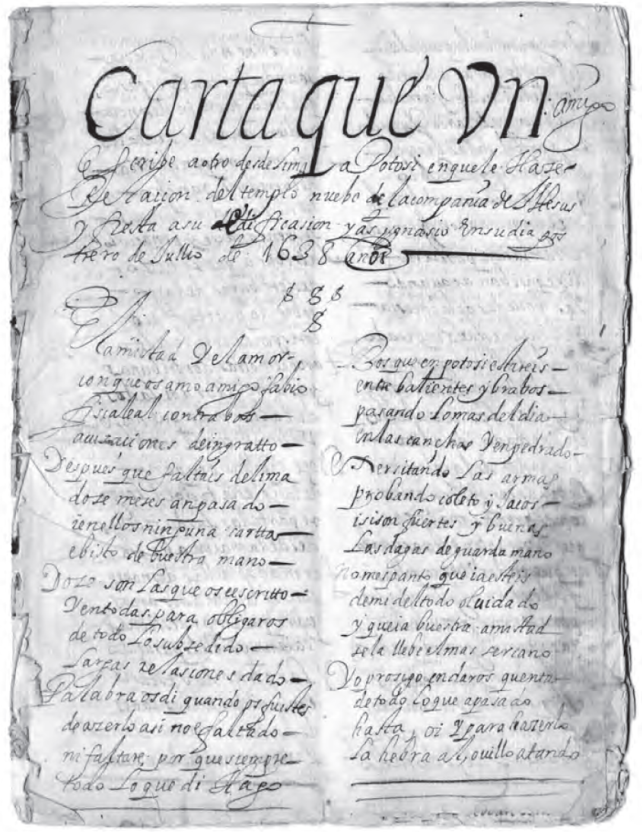 Carta que Vn amigo
Escribe a otro desde Lima a Potosi en que le Haze
Relacion del templo nuebo de la compañia de Jhesus
y fiesta a su edificasion y a s ygnasio En su dia pos
trero de Jullio de 1638 años
Si
la amistad Y el amor
con que os amo amigo fabio
fiscalea contra bos
acuzaciones de ingratto
Despues que faltais de lima
doze meses an pasado
i en ellos ninguna cartta
e bisto de buestra mano
Doze son las que os e escritto
Y en todas para obligaros
de todo lo subsedido
largas relasiones e dado
Palabra os di quando os fuistes
de azerlo asi no e faltado
ni faltare por que siempre
todo lo que di Hago
Bos que en potosi estareis
entre balientes y brabos
pasando lo mas del dia
en las canchas Y enpedrado
Exersitando Las armas
probando coleto y jacos
i si son fuertes y buenas
Las dagas de guarda mano
no me espanto que ia esteis
de mi del todo oluidado
y que ia buestra amistad
se la llebe el mas sercano
Yo prosigo en daros quenta
de todo lo que a pasado
hasta oi Y para hazerlo
la hebra al ouillo atando